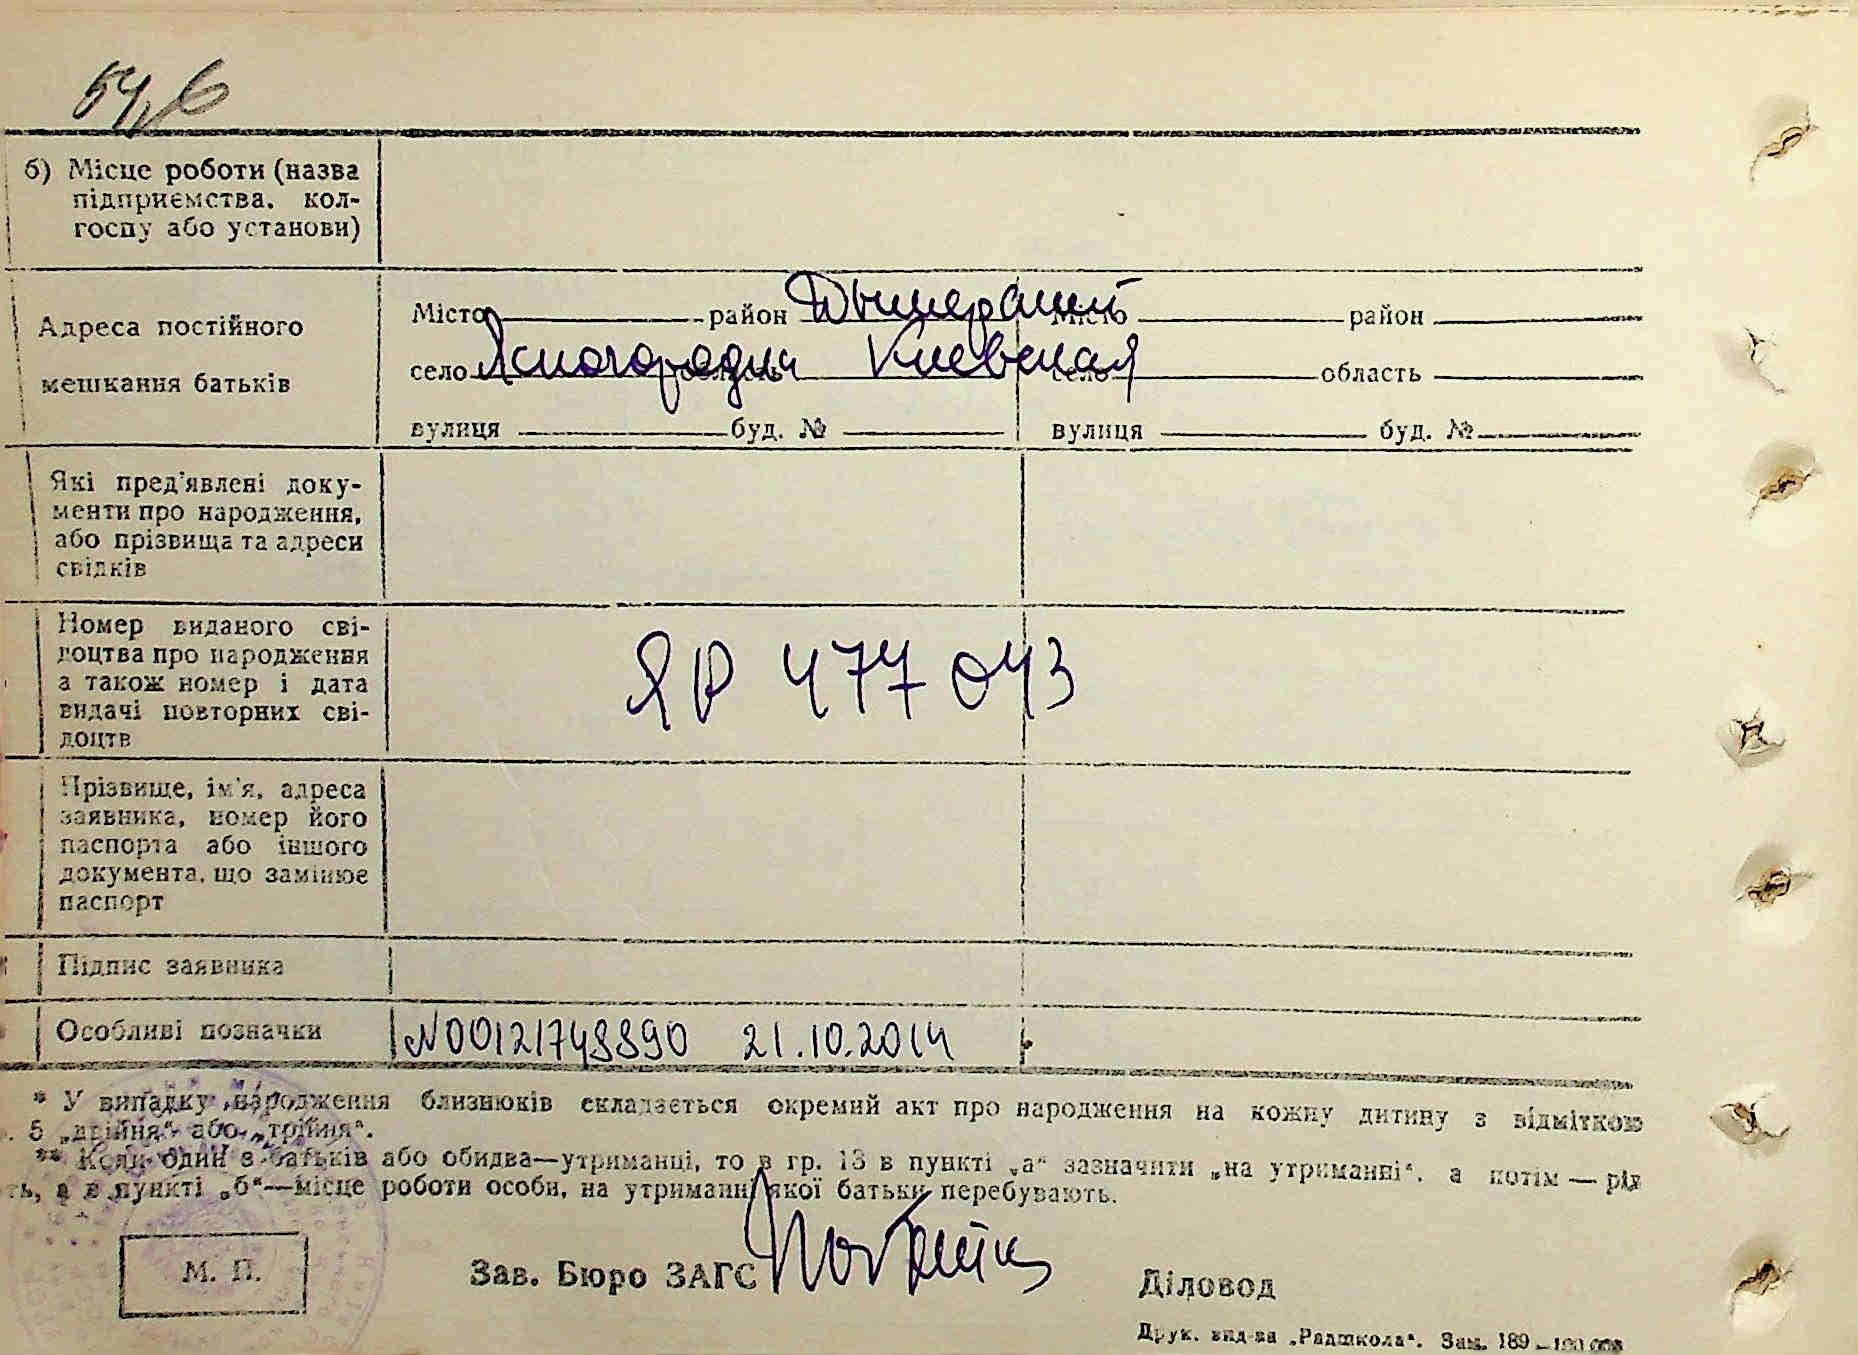 54, б
б) Місце роботи (назва
підприємства, кол-
госпу або установи)
Адреса постійного
мешкання батьків
Місто район Дымерский Місто район
село Ясногородка область Киевская село область
вулиця буд. № вулиця буд. №
Які пред'явлені доку-
менти про народження,
або прізвища та адреси
свідків
Номер виданого сві-
доцтва про народження
а також номер і дата
видачі повторних сві-
доцтв
ЯР 477043
Прізвище, ім'я, адреса
заявника, номер його
паспорта або іншого
документа, що замінює
паспорт
Підпис заявника
Особливі позначки
N00121748890 21.10.2014
* У випадку народження близнюків складається окремий акт про народження на кожну дитину з відміткою
. 5 „двійня“ або „трійня“.
** Коли один з батьків або обидва—утриманці, то в гр. 13 в пункті „а“ зазначити „на утриманні“, а потім — рід
ть, а в пункті „б“—місце роботи особи, на утриманні якої батьки перебувають.
М. П.
Зав. Бюро ЗАГС
Діловод
Друк. вид-ва „Радшкола“. Зам. 189—100.000